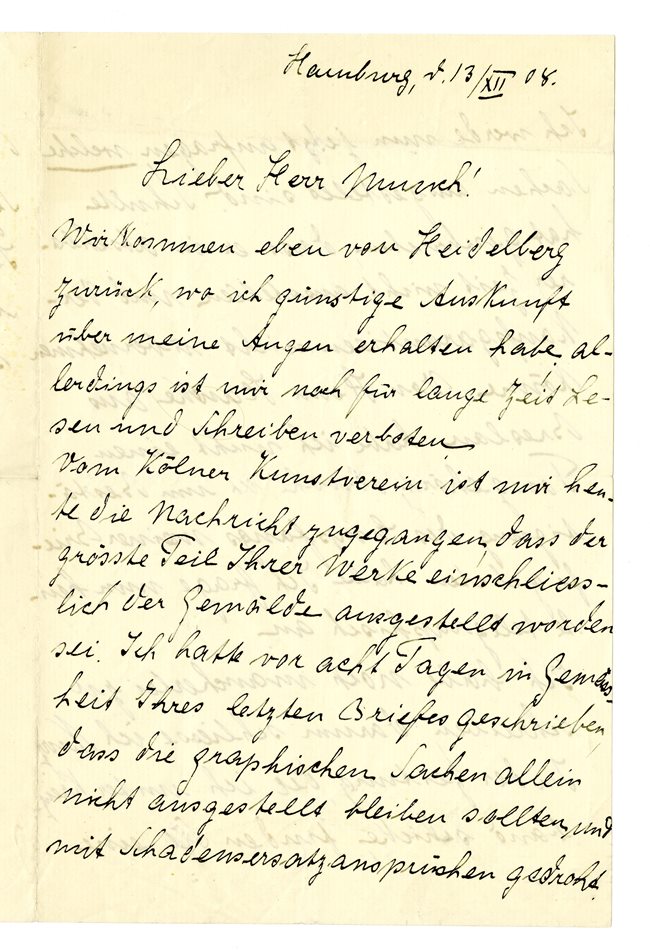 Hamburg, d. 13/XII 08.
Lieber Herr Munch!
Wir kommen eben von Heidelberg
zurück, wo ich günstige Auskunft
über meine Augen erhalten habe, al-
lerdings ist mir noch für lange Zeit Le-
sen und Schreiben verboten.
Vom Kölner Kunstverein ist mir heu-
te die Nachricht zugegangen, dass der
grösste Teil Ihrer Werke einschliess-
lich der Gemälde ausgestellt worden
sei. Ich hatte vor acht Tagen in Gemäss-
heit Ihres letzten Briefes geschrieben,
dass die graphischen Sachen allein
nicht ausgestellt bleiben sollten, und
mit Schadensersatzansprüchen gedroht.